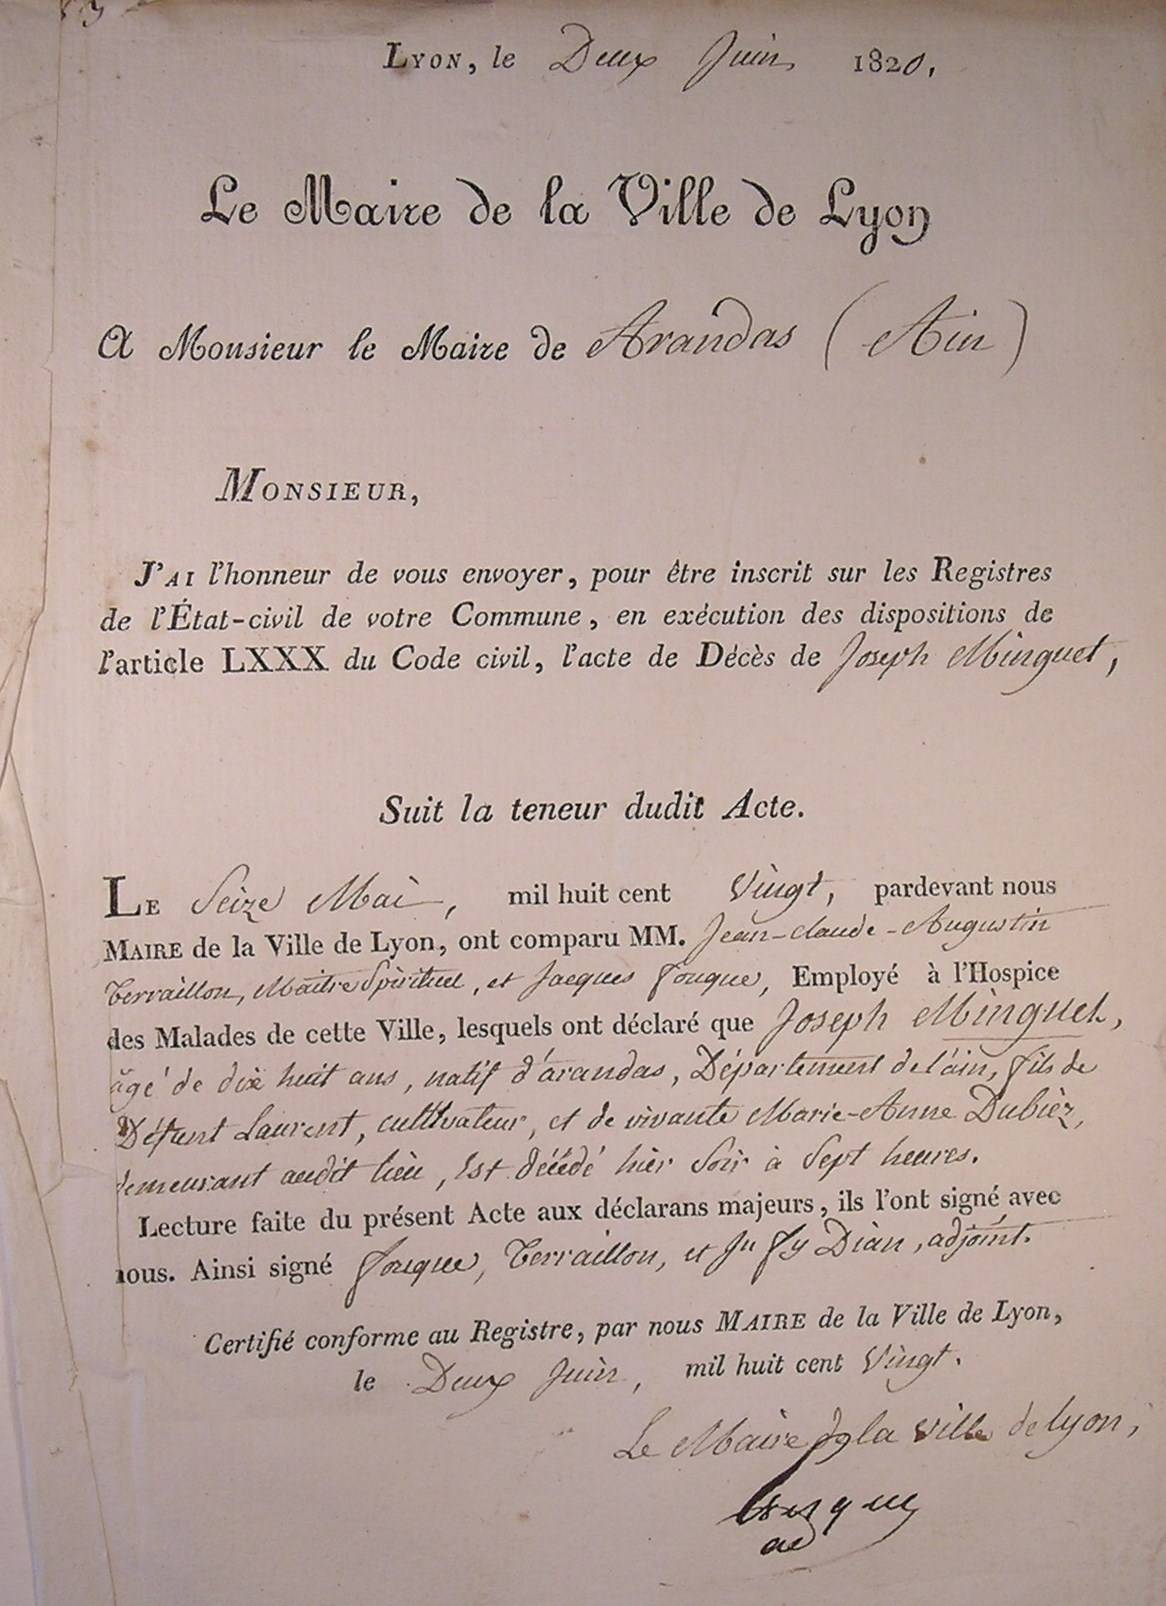 Lyon, le Deux Juin 1820.
Le Maire de la Ville de Lyon
A Monsieur le Maire de Arandas (Ain)
Monsieur,
J'ai l'honneur de vous envoyer, pour être inscrit sur les Registres
de l'État-civil de votre Commune, en exécution des dispositions de
l'article LXXX du Code civil, l'acte de Décès de Joseph Minguet,
Suit la teneur dudit Acte.
Le Seize Mai, mil huit cent Vingt, pardevant nous
Maire de la Ville de Lyon, ont comparu MM. Jean-claude-Augustin
Terraillon, Maitre Spirituel, et Jacques fouque, Employé à l'Hospice
des Malades de cette Ville, lesquels ont déclaré que Joseph Minguet,
âgé de dix huit ans, natif d'arandas, Département de l'ain, fils de
Défunt Laurent, cultivateur, et de vivante Marie-Anne Dubiez,
demeurant audit lieu, Est décédé hier Soir à Sept heures.
Lecture faite du présent Acte aux déclarans majeurs, ils l'ont signé avec
nous. Ainsi signé fouque, Terraillon, et Jn fy Dian, adjoint.
Certifié conforme au Registre, par nous Maire de la Ville de Lyon,
le Deux Juin, mil huit cent Vingt.
Le Maire de la ville de lyon,